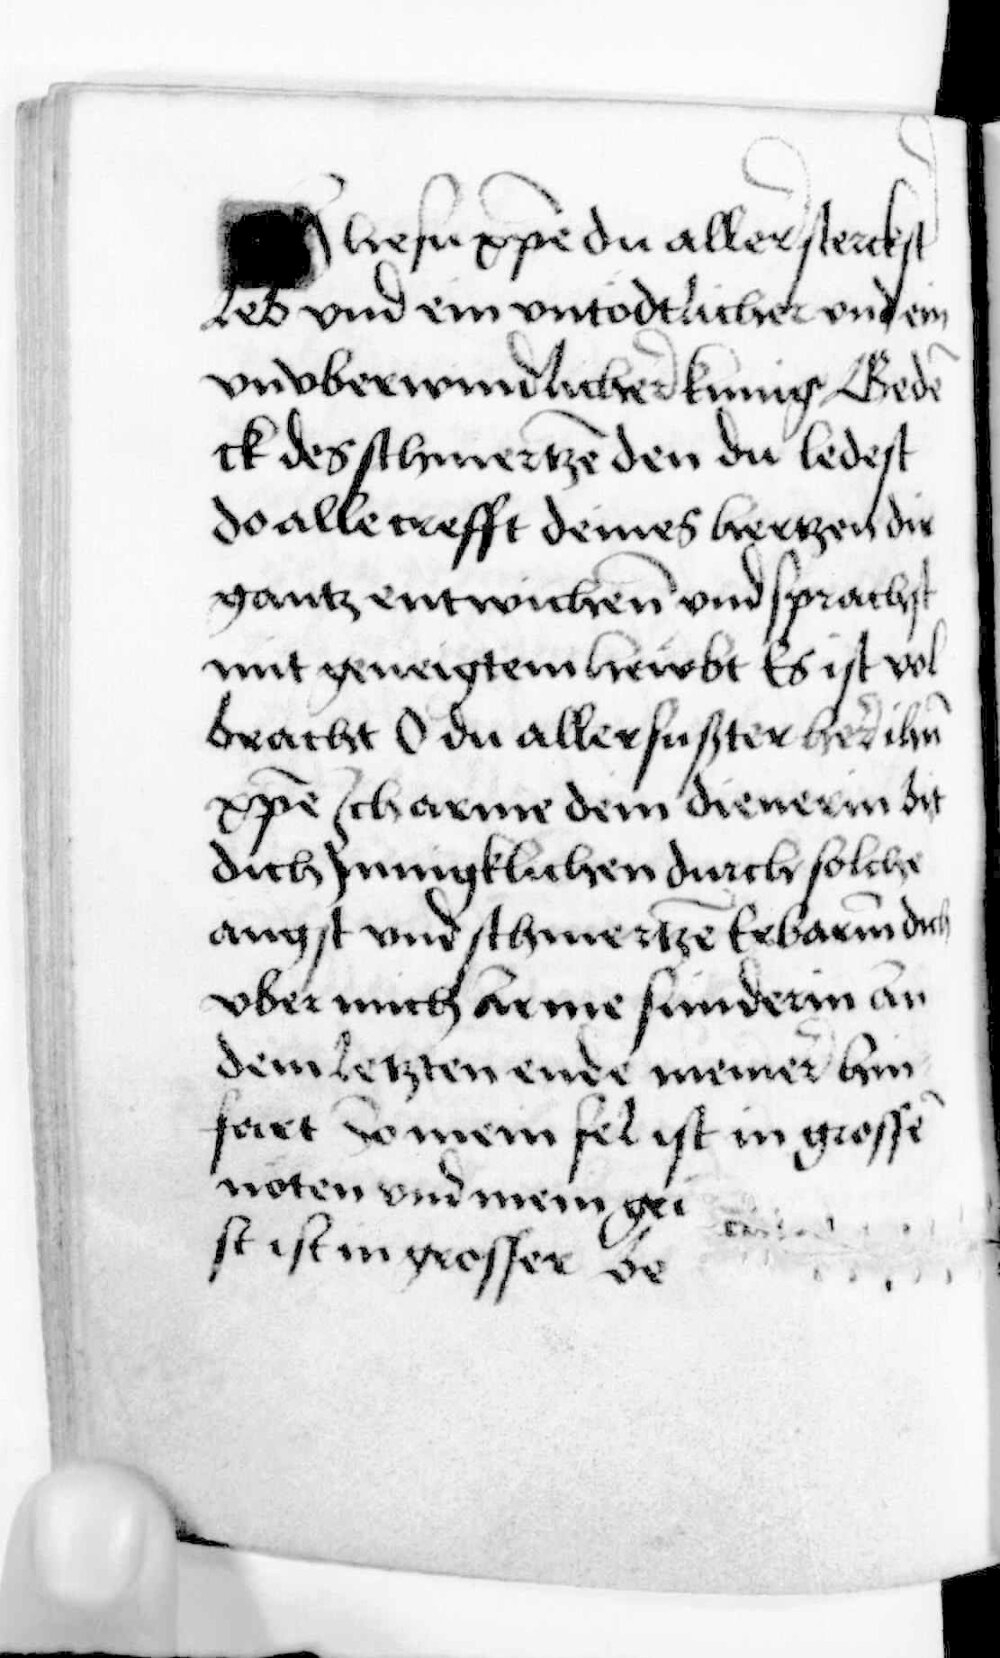 O ihesu xp̄e du aller sterckst
Leb vnd ein vntodtlicher vnd ein
vnvberwindlicher kunig Gedē
ck des schmertzē den du ledest
do alle crefft deines hertzen dir
gantz entwichen̄ vnd sprachst
mit geneigtem hewbt Es ist vol
bracht O du aller sußter her ihū
xp̄e Ich arme dein dienerin bit
dich Jnnigklichen durch solche
angst vnd schmertzē Erbarm̄ dich
vber mich arme sunderin an
dem letzten ende meiner hin
fart So mein sel ist in grossē
nöten vnd mein gei
st ist in grosser be